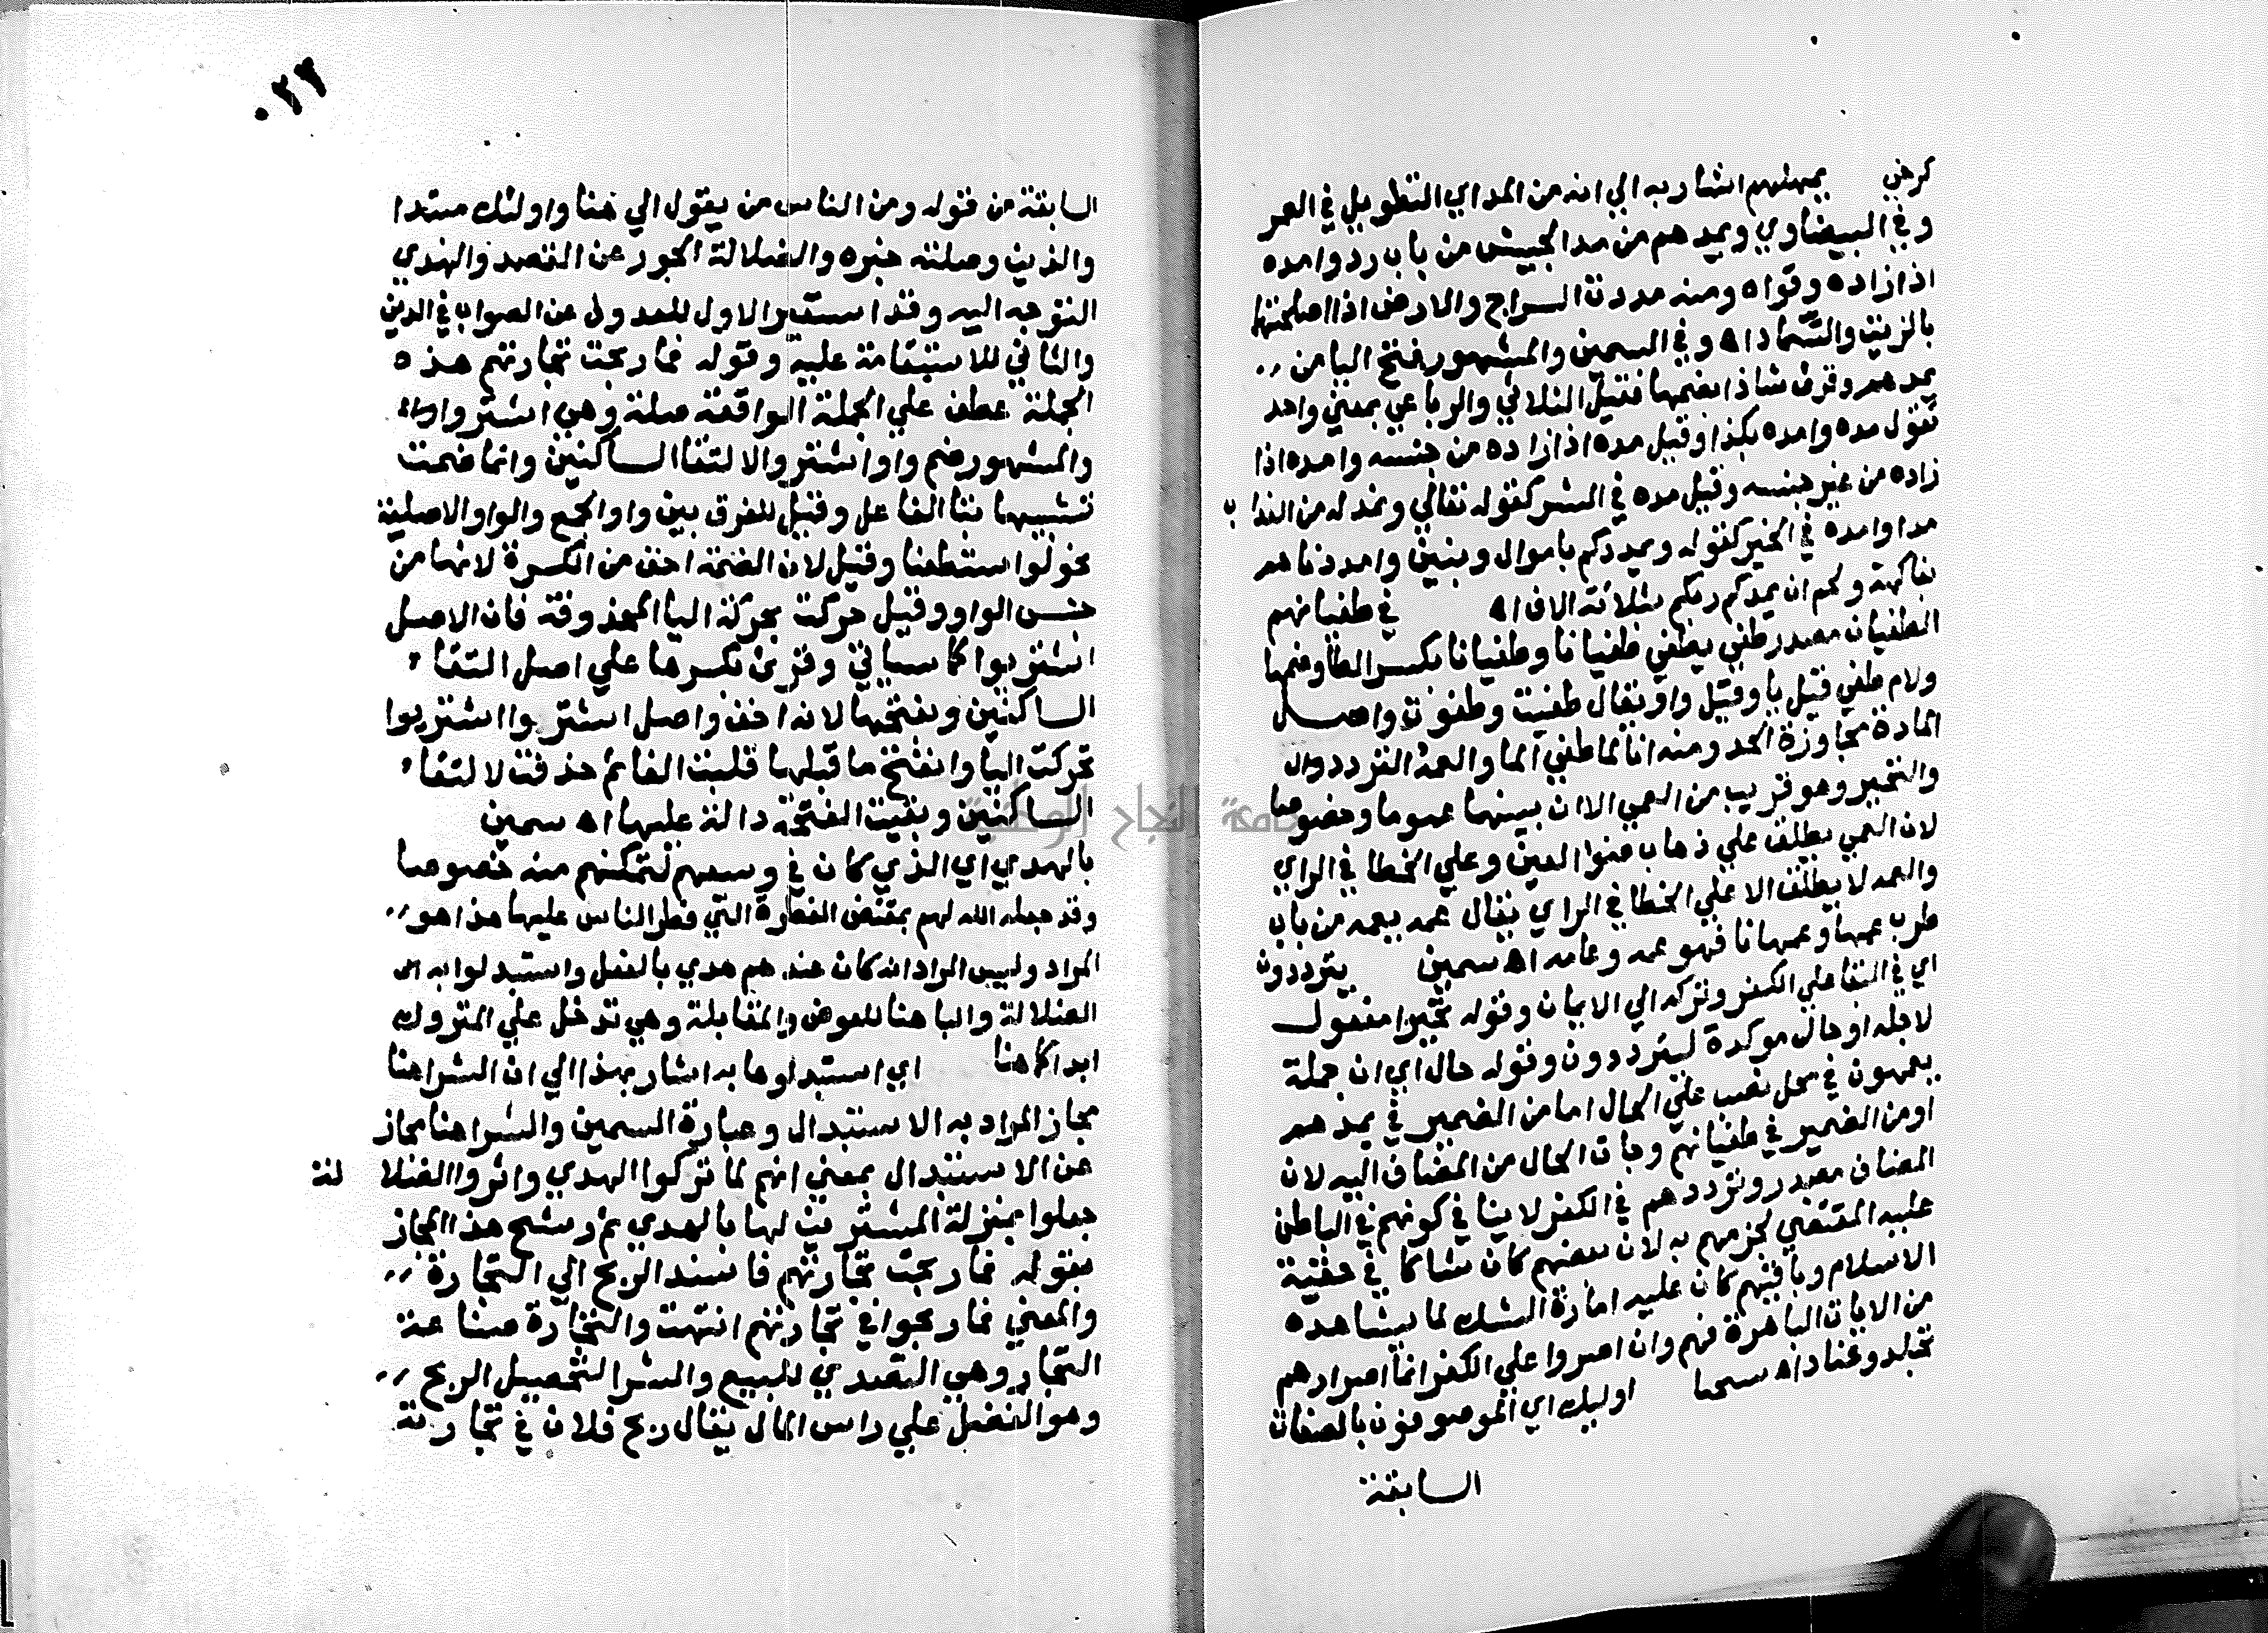 كرخي يمهلهم اشار به الي انه من المد اي التطويل في العمر
وفي البيضاوي ويمدهم من مد الجيش من باب رد وامده
اذا زاده وقواه ومنه مددت السراج والارض اذا اصلحتها
بالزيت والسماد اه وفي السمين والمشهور بفتح اليا من
يمدهم وقرئ شاذا بضمها فقيل الثلاثي والرباعي بمعني واحد
تقول مده وامده بكذا وقيل مده اذا زاده من جنسه وامده اذا
زاده من غير جنسه وقيل مده في الشر كقوله تعالي ونمد له من العذاب
مدا وامده في الخير كقوله ويمددكم باموال وبنين وامددناهم
بفاكهة ولحم ان يمدكم ربكم بثلاثة الاف اه في طغيانهم
الطغيان مصدر طغي يطغي طغيانا وطغيانا بكسر الطا وضمها
ولام طغي قيل يا وقيل واو يقال طغيت وطغوت واصل
المادة مجاوزة الحد ومنه انا لما طغي الما والعمه التردد وال
والتحير وهو قريب من العمي الا ان بينهما عموما وخصوصا
لان العمي يطلق علي ذهاب ضوا العين وعلي الخطا في الراي
والعمه لا يطلق الا علي الخطا في الراي يقال عمه يعمه من باب
طرب عمها وعمهانا فهو عمه وعامه اه سمين يترددون
اي في البقا علي الكفر وتركه الي الايمان وقوله تحيرا مفعول
لاجله او حال موكدة ليترددون وقوله حال اي ان جملة
يعمهون في محل نصب علي الحال اما من الضمير في يمدهم
او من الضمير في طغيانهم وجات الحال من المضاف اليه لان
المضاف مصدر وترددهم في الكفر لا ينا في كونهم في الباطن
عليه المقتضي لجزمهم به لان بعضهم كان شاكا في حقية
الاسلام وباقيهم كان عليه امارة الشك لما يشاهده
من الايات الباهرة فهم وان اصروا علي الكفر انما اصرارهم
تجلد وعناد اه اوليك اي الموصوفون بالصفات
السابقة
٠٢٢
السابقة من قوله ومن الناس من يقول الي هنا واولئك مبتدا
والذين وصلته خبره والضلالة الجور عن القصد والهدي
التوجه اليه وقد استعير الاول للعدول عن الصواب في الدين
والثاني للاستقامة عليه وقوله فما ربحت تجارتهم هذه
الجملة عطف علي الجملة الواقعة صلة وهي اشتروا
والمشهور ضم واو اشتروا لالتقا الساكنين وانما ضمت
تشبيها بتا الفاعل وقيل للفرق بين واو الجمع والواو الاصلية
نحو لو استطعنا وقيل لان الضمة اخف من الكسرة لانها من
جنس الواو وقيل حركت بحركة اليا المحذوفة فان الاصل
اشتريوا كما سياتي وقرئ بكسرها علي اصل التقاء
الساكنين وبفتحها لانه اخف واصل اشتروا اشتريوا
تحركت اليا وانفتح ما قبلها قلبت الفا ثم حذفت لالتقاء
الساكنين وبقيت الفتحة دالة عليها اه سمين
بالهدي اي الذي كان في وسعهم لتمكنهم منه خصوصا
وقد جعله الله لهم بمقتضي الفطرة التي فطر الناس عليها هذا هو
المراد وليس المراد انه كان عندهم هدي بالفعل واستبدلوا به
الضلالة والبا هنا للعوض والمقابلة وهي تدخل علي المتروك
ابدا كما هنا اي استبدلوها به اشار بهذا الي ان الشرا هنا
مجاز المراد به الاستبدال وعبارة السمين والشرا هنا مجاز
عن الاستبدال بمعني انهم لما تركوا الهدي واثروا الضلا لة
جعلوا بمنزلة المشترين لها بالهدي ثم رشح هذا المجاز
بقوله فما ربحت تجارتهم فاسند الربح الي التجارة
والمعني فما ربحوا في تجارتهم انتهت والتجارة صناعة
التجار وهي التصدي للبيع والشرا لتحصيل الربح
وهو الفضل علي راس المال يقال ربح فلان في تجارته
جامعة النجاح الوطنية